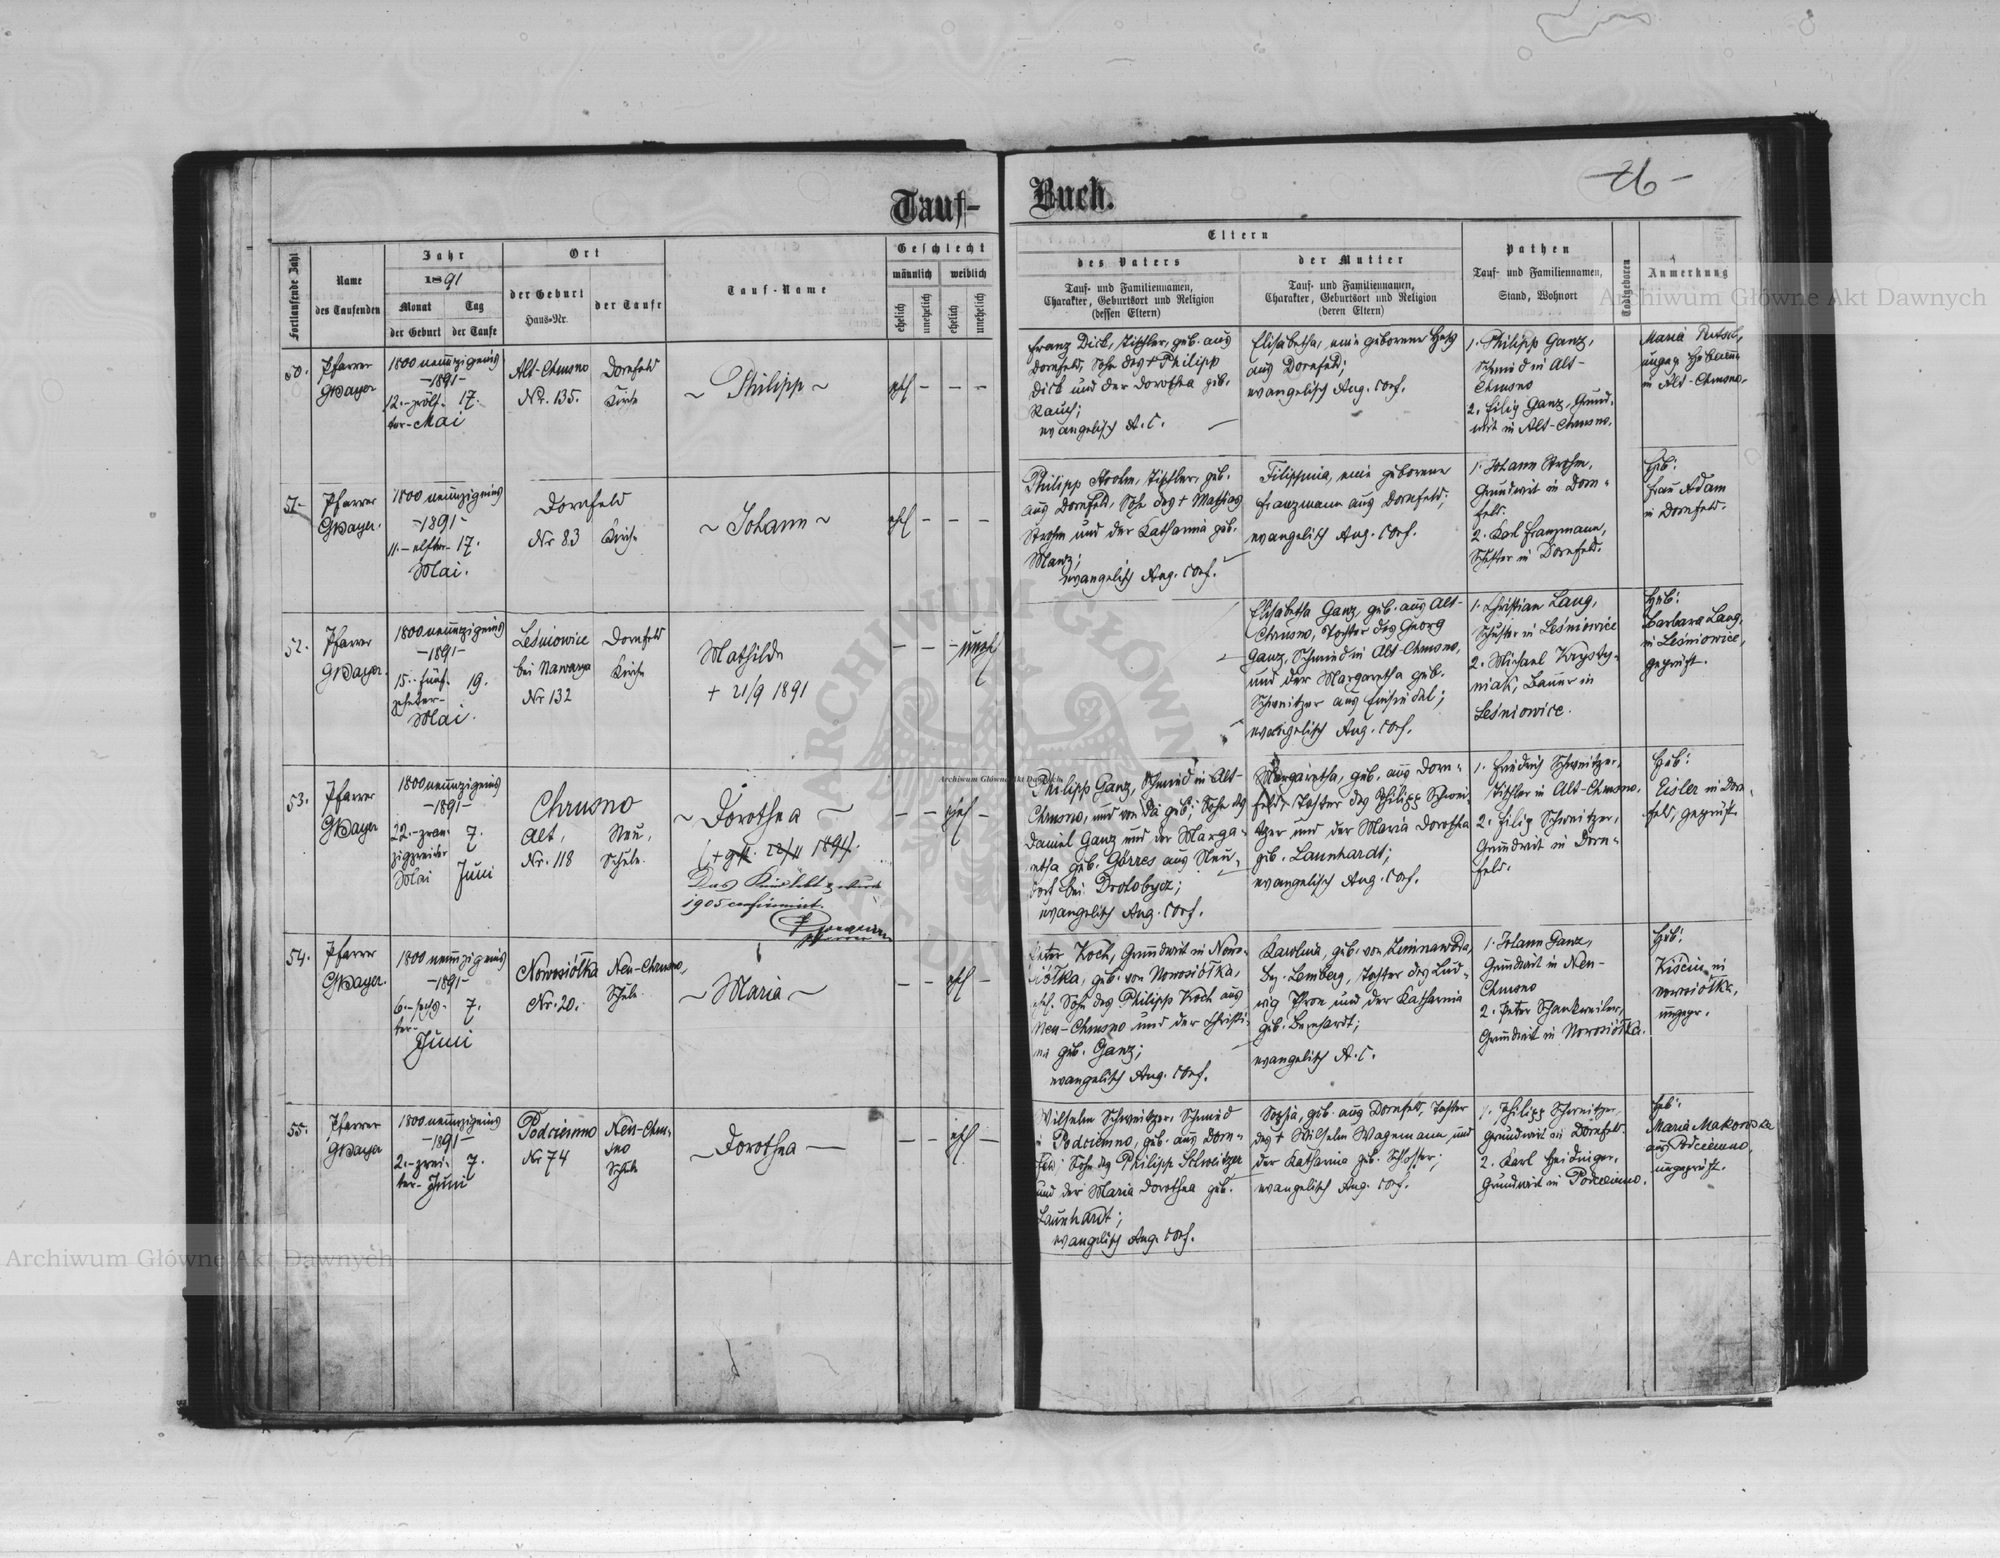 Tauf-
Buch.
- 26 -
Fortlaufende Zahl
Name
des Taufenden
Jahr
1891
Monat
Tag
der Geburt
der Taufe
Ort
der Geburt
Haus-Nr.
der Taufe
Tauf-Name
Geschlecht
männlich
weiblich
ehelich
unehelich
ehelich
unehelich
Eltern
des Vaters
Tauf- und Familiennamen,
Charakter, Geburtsort und Religion
(dessen Eltern)
der Mutter
Tauf- und Familiennamen,
Charakter, Geburtsort und Religion
(deren Eltern)
Pathen
Tauf- und Familiennamen,
Stand, Wohnort
Todtgeboren
Anmerkung
50.
Pfarrer
GBayer
1800 neunzigeins
-1891-
12.-zwölf- 17.
ter- Mai
Alt-Chrusno
Nr. 135.
Dornfeld
Kirche
~ Philipp ~
ehl - - -
Franz Dick, Tischler, geb. aus
Dornfeld, Sohn des + Philipp
Dick und der Dorothea geb.
Rauch;
evangelisch A.C.
Elisabetha, eine geborene Hetz
aus Dornfeld;
evangelisch Aug. Conf.
1. Philipp Ganz,
Schmied in Alt-
Chrusno
2. Filip Ganz, Grund-
wirt in Alt-Chrusno.
Maria
Hebamme
in Alt-Chrusno.
51.
Pfarrer
GBayer.
1800 neunzigeins
-1891-
11.-elfter- 17.
Mai.
Dornfeld
Nr 83
Kirche
~ Johann ~
ehl - - -
Philipp Strohm, Tischler, geb.
aus Dornfeld, Sohn des + Mathias
Strohm und der Katharina geb.
Manz;
evangelisch Aug. Conf.
Filippina, eine geborene
Franzmann aus Dornfeld;
evangelisch Aug. Conf.
1. Johann Strohm,
Grundwirt in Dorn-
feld.
2. Karl Franzmann,
Schuster in Dornfeld.
Heb:
Frau Adam
in Dornfeld.
52.
Pfarrer
GBayer.
1800 neunzigeins
-1891-
15.-fünf- 19.
zehnter-
Mai.
Leśniowice
bei Nawarya
Nr 132
Dornfeld
Kirche
Mathilde
+ 21/9 1891
- - - unehl
Elisabetha Ganz, geb. aus Alt-
Chrusno, Tochter des Georg
Ganz, Schmied in Alt-Chrusno,
und der Margaretha geb.
Schweitzer aus Einsiedel;
evangelisch Aug. Conf.
1. Christian Lang,
Schuster in Leśniowice
2. Michael Krysty-
niak, Bauer in
Leśniowice.
Heb:
Barbara Lang,
in Leśniowice,
geprüft.
53.
Pfarrer
GBayer
1800 neunzigeins
-1891-
22.-zwan- 7.
zigzweiter
Mai Juni
Chrusno
Alt,
Nr. 118
Neu,
Schule.
~ Dorothea ~
22/11 1894.
Das Kind lebt u. wurde
1905 confirmirt.
- - ehl -
Philipp Ganz, Schmied in Alt-
Chrusno, und von da geb; Sohn des
Daniel Ganz und der Marga-
retha geb. Görres aus Neu-
dorf bei Drohobycz;
evangelisch Aug. Conf.
Margaretha, geb. aus Dorn-
feld, Tochter des Philipp Schwei-
tzer und der Maria Dorothea
geb. Launhardt;
evangelisch Aug. Conf.
1. Friedrich Schweitzer,
Tischler in Alt-Chrusno.
2. Filip Schweitzer,
Grundwirt in Dorn-
feld.
Heb:
Eisler in Dorn-
feld, geprüft.
54.
Pfarrer
GBayer.
1800 neunzigeins
-1891-
6.-sechs- 7.
ter-
Juni
Nowosiółka
Nr. 20.
Neu-Chrusno,
Schule.
~ Maria ~
- - ehl -
Peter Koch, Grundwirt in Nowo-
siółka, geb. von Nowosiółka,
ehl. Sohn des Philipp Koch aus
Neu-Chrusno und der Christi-
na geb. Ganz;
evangelisch Aug. Conf.
Karolina, geb. von Zimnawoda,
bez. Lemberg, Tochter des Lud-
wig Thron und der Katharina
geb. Bernhardt;
evangelisch A.C.
1. Johann Ganz,
Grundwirt in Neu-
Chrusno
2. Peter Schankweiler,
Grundwirt in Nowosiółka.
Heb:
in
Nowosiółka,
ungepr.
55.
Pfarrer
GBayer
1800 neunzigeins
-1891-
2.-zwei- 7.
ter- Juni
Podciemno
Nr 74
Neu-Chru-
sno
Schule
- Dorothea -
- - ehl -
Wilhelm Schweitzer, Schmied
in Podciemno, geb. aus Dorn-
feld; Sohn des Philipp Schweitzer
und der Maria Dorothea geb.
Launhardt;
evangelisch Aug. Conf.
Sophia, geb. aus Dornfeld, Tochter
des + Wilhelm Wagemann und
der Katharina geb. Schlosser;
evangelisch Aug. Conf.
1. Philipp Schweitzer,
Grundwirt in Dornfeld.
2. Karl Heidinger,
Grundwirt in Podciemno.
Heb:
Maria Makowska
aus Podciemno,
ungeprüft.
Archiwum Główne Akt Dawnych
Archiwum Główne Akt Dawnych
Archiwum Główne Akt Dawnych